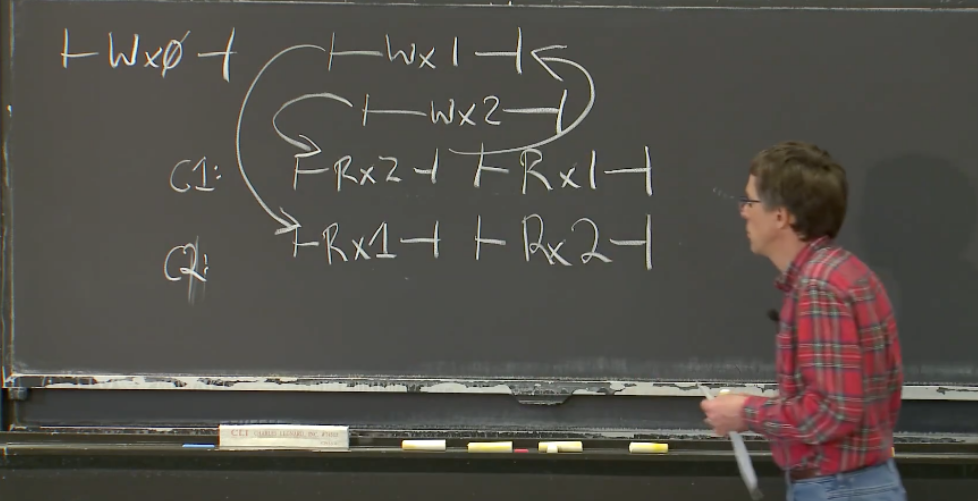 Wx0 Wx1
Wx2
C1: Rx2 Rx1
C2: Rx1 Rx2